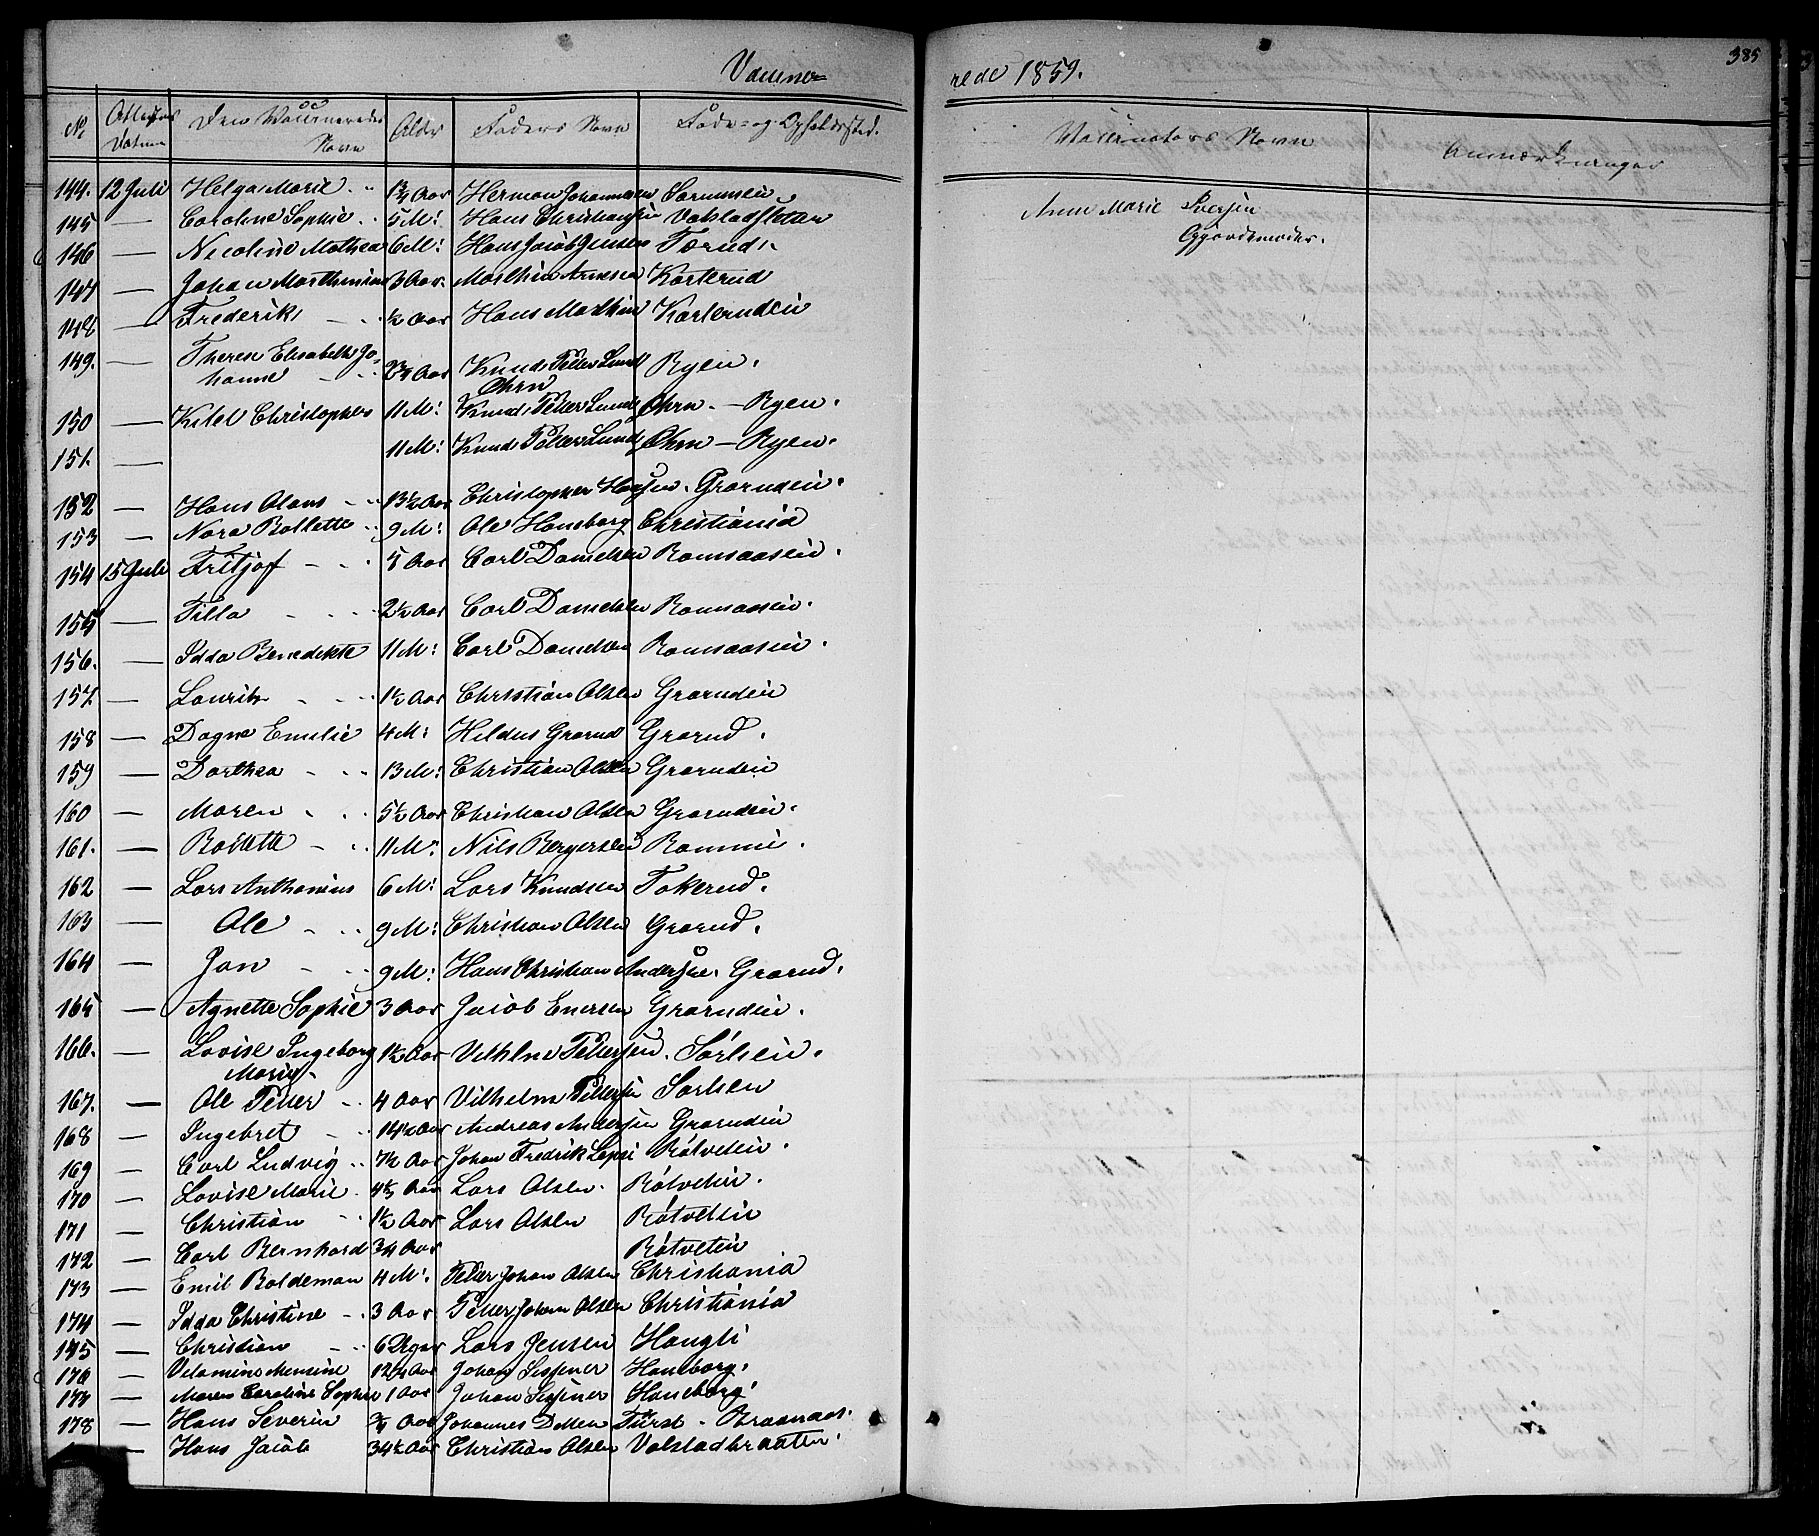 Vaccine-
rede 1859.
385
No Attestens Datum Den Vaccineredes Navn Alder Faders Navn Føde- og Opholdssted. Vaccinators Navn Anmærkninger
144. 12 Juli Helga Marie 1¾ Aar Herman Johannesen
Anne Marie Iversen
Gjordemoder.
145 — Caroline Sophie 5 M: Hans Christiansen Valstadsletten
146 — Nicoline Mathea 6 M: Hans Jacob Jensen Tærud
147 — Johan Marthinius 3 Aar. Marthin Arnesen Karterud
148 — Frederik ½ Aar Hans Mathin Karlerudein
149. — Therese Elisabeth Jo-
hanne 2¾ Aar Knud Petter Lund Ryen.
Øhrn
150 — Kitel Christopher 11 M: Knud Petter Lund Øhrn — Ryen.
151. — 11 M: Knud Petter Lund Øhrn — Ryen.
152 — Hans Olaus 13½ Aar Christopher Hansen. Grorudein.
153 — Nora Bollette 9 M: Ole Haneborg Christiania
154 15 Juli Fritjof 5 Aar Carl Danielsen Romsaasein.
155 — Tilla 2½ Aar Carl Danielsen Romsaasein.
156. — Idda Benedikte 11 M: Carl Danielsen Romsaasein.
157 — Lauritz 1½ Aar Christian Olsen Grorudein
158 — Dagne Emilie 4 M: Hildus Grorud Grorud.
159 — Dorthea 13 M: Christian Olsen Grorudein
160 — Maren 5½ Aar Christian Olsen Grorudein.
161. — Bollette 11 M: Nils Bergersen Rommi.
162 — Lars Anthonius 6 M: Lars Knudsen Tokerud.
163 — Ole 9 M: Christian Olsen Grorud.
164 — Jan 9 M: Hans Christian Andersen. Grorud.
165 — Agnette Sophie 3 Aar Jacob Enersen Grorudein.
166. — Lovise Ingeborg 1½ Aar Vilhlm Pettersen. Sørlsein.
Marie
167. — Ole Petter 4 Aar Vilhelm Pettersen Sørlsen
168 — Ingebret 14½ Aar Andreas Andersen Grorudein
169 — Carl Ludvig 7½ Aar Johan Fredrik Røtvetein.
170 — Lovise Marie 4½ Aar Lars Olsen. Røtvetein.
171 — Christian 1½ Aar Lars Olsen Røtvetein
172 — Carl Bernhard 34 Aar Røtvetein
173 — Emil Boldeman 4 M: Petter Johan Olsen Christiania
174 — Idda Christine 3 Aar Petter Johan Olsen Christiania
175 — Christian 6 Uger Lars Jensen Haugli
176 — Vilamine Mensine 12½ Aar Johan Sissener Haneborg.
177 — Maren Caroline Sophie 1 Aar Johan Sissener Haneborg.
178 — Hans Severin ¾ Aar Johannes Furst.
— Hans Jacob 34½ Aar Christian Olsen Valstadbraaten.